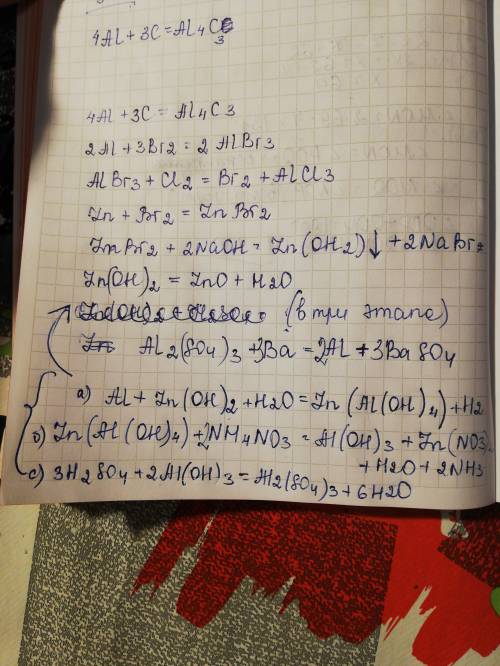 4Al + 3C = Al4C3
4Al + 3C = Al4C3
2Al + 3Br2 = 2AlBr3
AlBr3 + Cl2 = Br2 + AlCl3
Zn + Br2 = ZnBr2
ZnBr2 + 2NaOH = Zn(OH2)↓ + 2NaBr
Zn(OH)2 = ZnO + H2O
(в три этапа)
Al2(SO4)3 + 3Ba = 2Al + 3BaSO4
a) Al + Zn(OH)2 + H2O = Zn(Al(OH)4) + H2
б) Zn(Al(OH)4) + 2NH4NO3 = Al(OH)3 + Zn(NO3)
+ H2O + 2NH3
c) 3H2SO4 + 2Al(OH)3 = Al2(SO4)3 + 6H2O